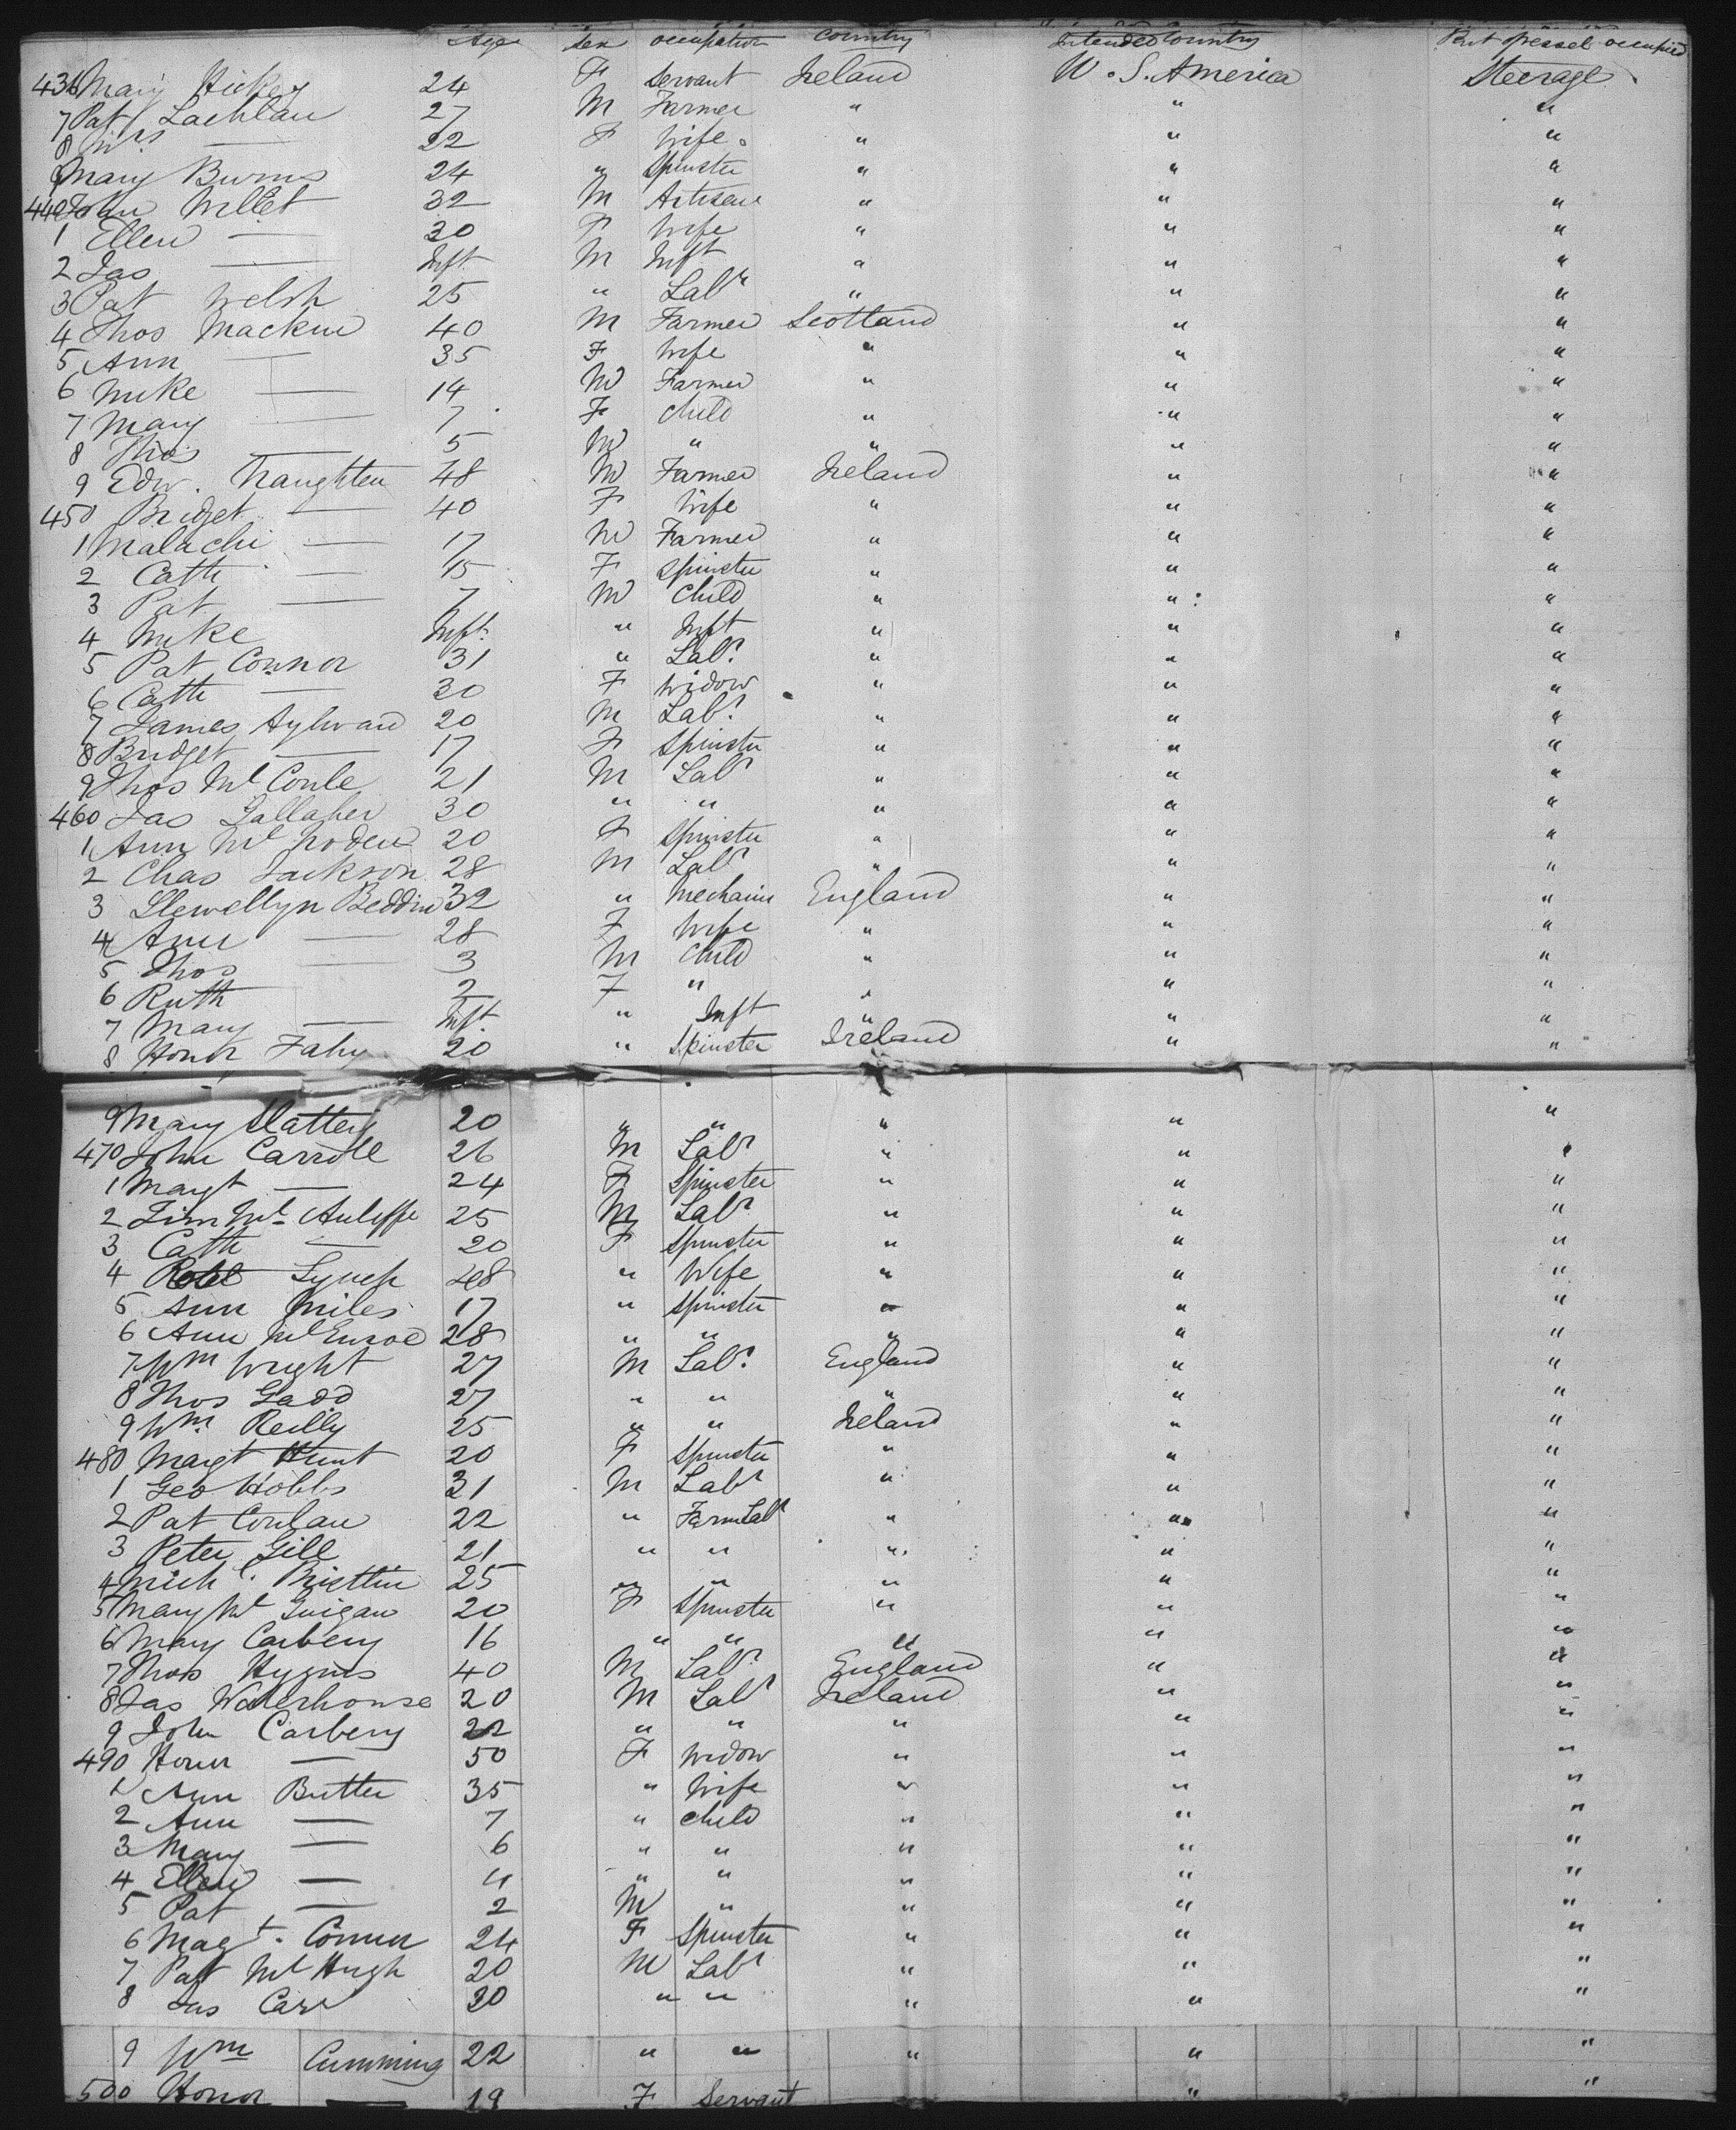 Age Sex occupation Country Intended Country Part of vessel occupied
436 Mary Hickey 24 F Servant Ireland U. S. America Steerage
7 Pat Lachlan 27 M Farmer " " "
8 Mrs — 22 F Wife " " "
9 Mary Burns 24 " Spinster " " "
440 John Willet 32 M Artisan " " "
1 Ellen — 30 F Wife " " "
2 Jas — Inft. M Inft " " "
3 Pat Welsh 25 " Labr " " "
4 Thos Mackin 40 M Farmer Scotland " "
5 Ann — 35 F Wife " " "
6 Mike — 14 M Farmer " " "
7 Mary — 7 F Child " " "
8 Thos — 5 M " " " "
9 Edw. Naughten 48 M Farmer Ireland " "
450 Bridget — 40 F Wife " " "
1 Malachi — 17 M Farmer " " "
2 Cath — 15 F Spinster " " "
3 Pat — 7 M Child " " "
4 Mike Inft. " Inft " " "
5 Pat Connor 31 " Labr " " "
6 Cath — 30 F Widow " " "
7 James Aylward 20 M Labr " " "
8 Bridget — 17 F Spinster " " "
9 Thos Mc 21 M Labr " " "
460 Jas Gallaher 30 " " " " "
1 Ann Mc 20 F Spinster " " "
2 Chas Jackson 28 M Labr " " "
3 Llewellyn Beddin 32 " Mechanic England " "
4 Ann — 28 F Wife " " "
5 Thos — 3 M Child " " "
6 Ruth — 2 F " " " "
7 Mary — Inft. " Inft " " "
8 Honor Fahy 20 " Spinster Ireland " "
9 Mary Slattery 20 " " " " "
470 John Carroll 26 M Labr " " "
1 Margt — 24 F Spinster " " "
2 Tim Mc Auliffe 25 M Labr " " "
3 Cath — 20 F Spinster " " "
4 Lynch 28 " Wife " " "
5 Ann Miles 17 " Spinster " " "
6 Ann McEnroe 28 " " " " "
7 Wm Wright 27 M Labr England " "
8 Thos Gadd 27 " " " " "
9 Wm Reilly 25 " " Ireland " "
480 Margt Hunt 20 F Spinster " " "
1 Geo Hobbs 31 M Labr " " "
2 Pat Conlan 22 " Farm Labr " " "
3 Peter Gill 21 " " " " "
4 Michl. 25 " " " " "
5 Mary Mc Guigan 20 F Spinster " " "
6 Mary Carbery 16 " " " " "
7 Thos Hygins 40 M Labr England " "
8 Jas Waterhouse 20 M Labr Ireland " "
9 John Carbery 22 " " " " "
490 Honor — 50 F Widow " " "
1 Ann Butler 35 " Wife " " "
2 Ann — 7 " Child " " "
3 Mary — 6 " " " " "
4 Ellen — 4 " " " " "
5 Pat — 2 M " " " "
6 Magt. Connor 24 F Spinster " " "
7 Pat Mc Hugh 20 M Labr " " "
8 Jas Carr 20 " " " " "
9 Wm Cumming 22 " " " " "
500 Honor — 19 F Servant " " "